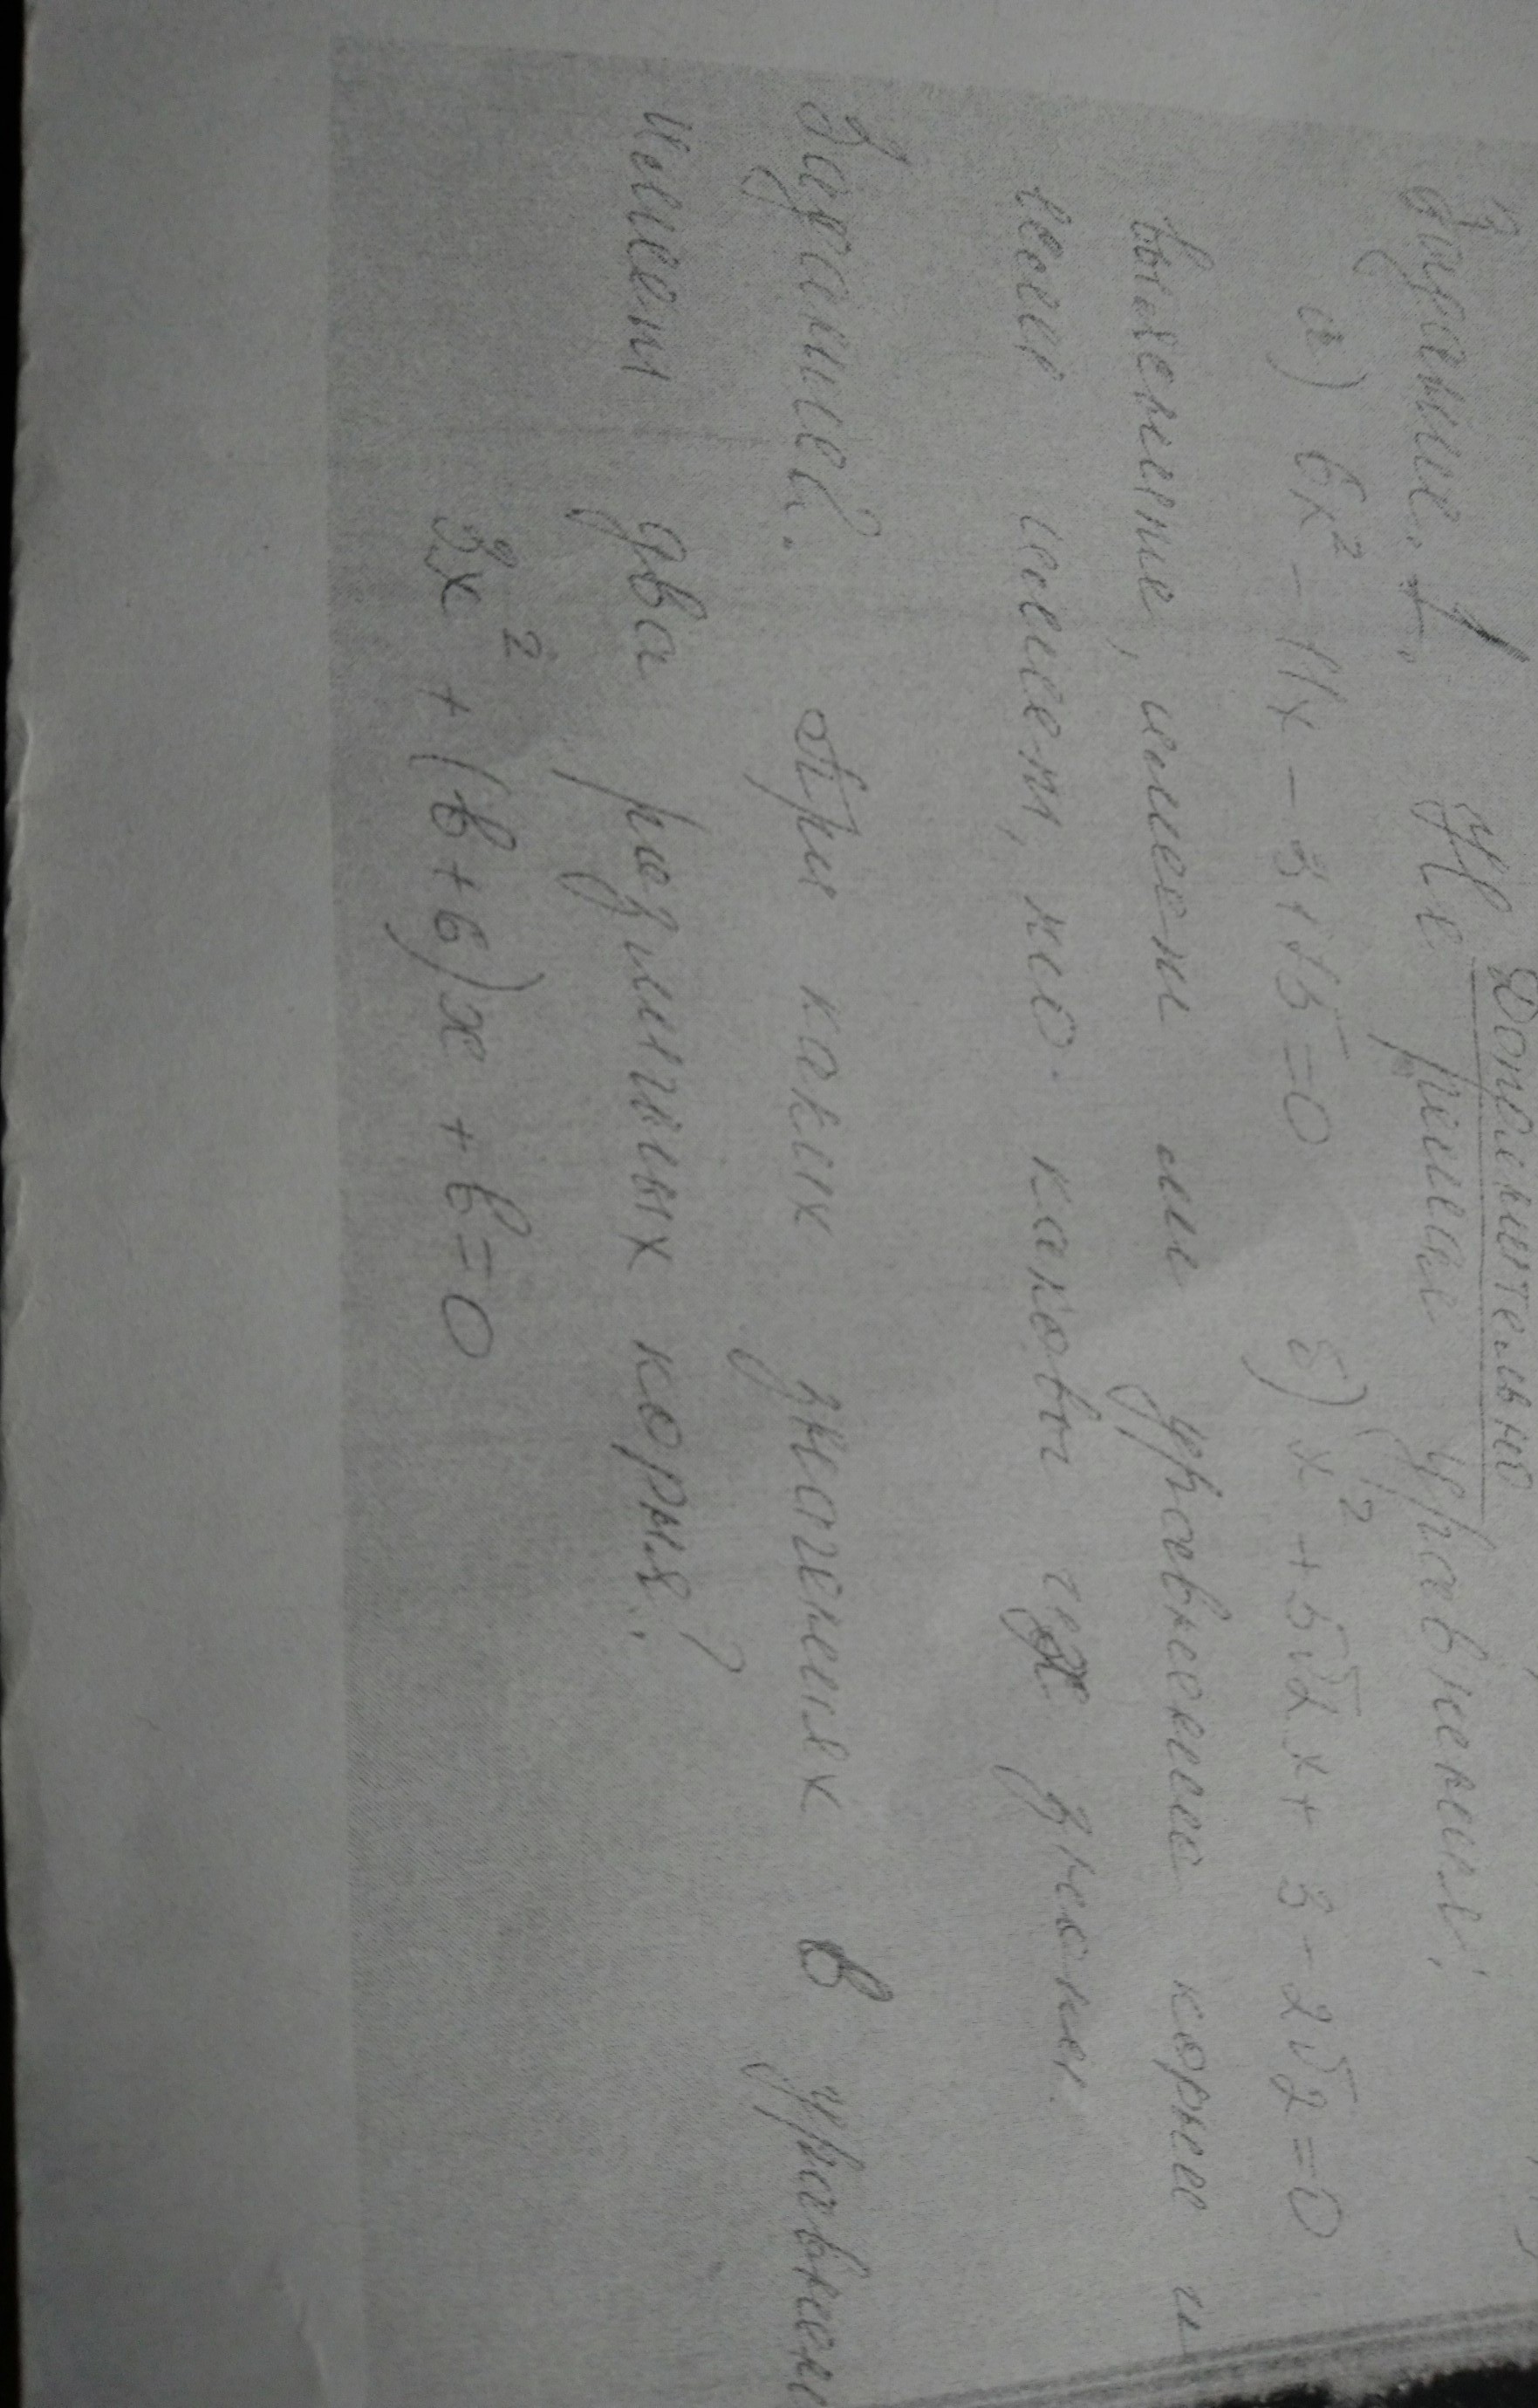 Дополнительно
Задание. 1. Не решая уравнения:
а) 6x² - 11x - 3 + √5 = 0 б) x² + 5√2x + 3 - 2√2 = 0
выясните, имеет ли уравнение корни и
если имеет, то каковы их знаки.
Задание 2. При каких значениях в уравнен
имеет два различных корня?
3x² + (в+6)x + в = 0